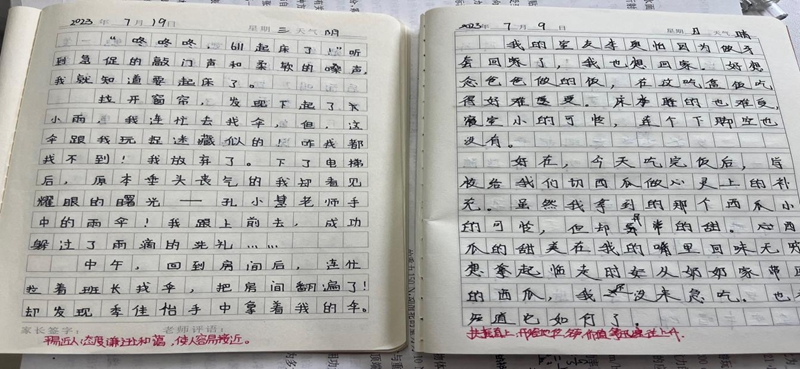 2023年 7月 19日 星期三 天气 阴
"咚咚咚，叫起床了！"听
到急促的敲门声和柔软的嗓声，
我就知道要起床了。
找开窗帘，发现下起了
小雨，我连忙去找伞，但，这
伞跟我玩捉迷藏似的！咋找都
找不到！我放弃了。下了电梯
后，原本垂头丧气的我却看见
耀眼的曙光——孔小慧老师手
中的雨伞！我跟上前去，成功
躲过了雨滴的洗礼……
中午，回到房间后，连忙
拉着班长找伞，把房间翻遍了！
却发现李佳怡手中拿着我的伞。
家长签字： 老师评语：
平易近人：态度谦和，使人容易接近。
2023年 7月 9日 星期日 天气 晴
我的室友李奥怡因为做手
回家了，我也想回家，好想
念爸爸做的饭，在这吃食饭吃
很好难
寝室小的可怜，连个下脚
没有。
好在，今天吃完饭后，后
给我们切西瓜做心灵上的补
充。虽然我拿到的那个西瓜小
的可怜，但却异常的甜。心
瓜的甜美在我的嘴里回味无
想拿起临走时从奶奶家带
的西瓜，我没来急吃，也
知道它如何了。
扶摇直上：